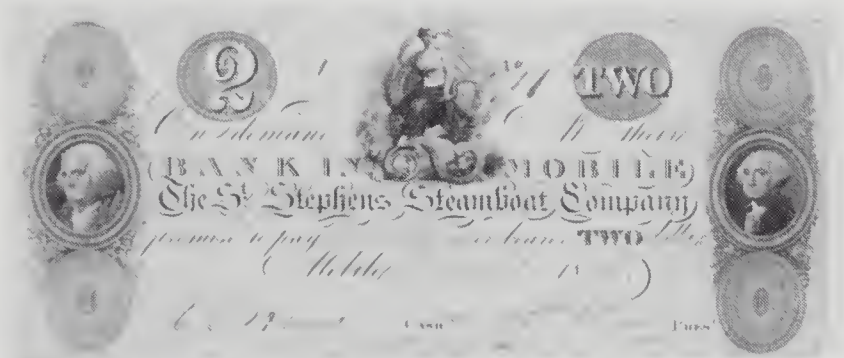 2 TWO
On demand at their
(BANK IN MOBILE)
The St. Stephens Steamboat Company
promise to pay or bearer TWO Dolls
(Mobile 18 )
Cash.r Pres.t